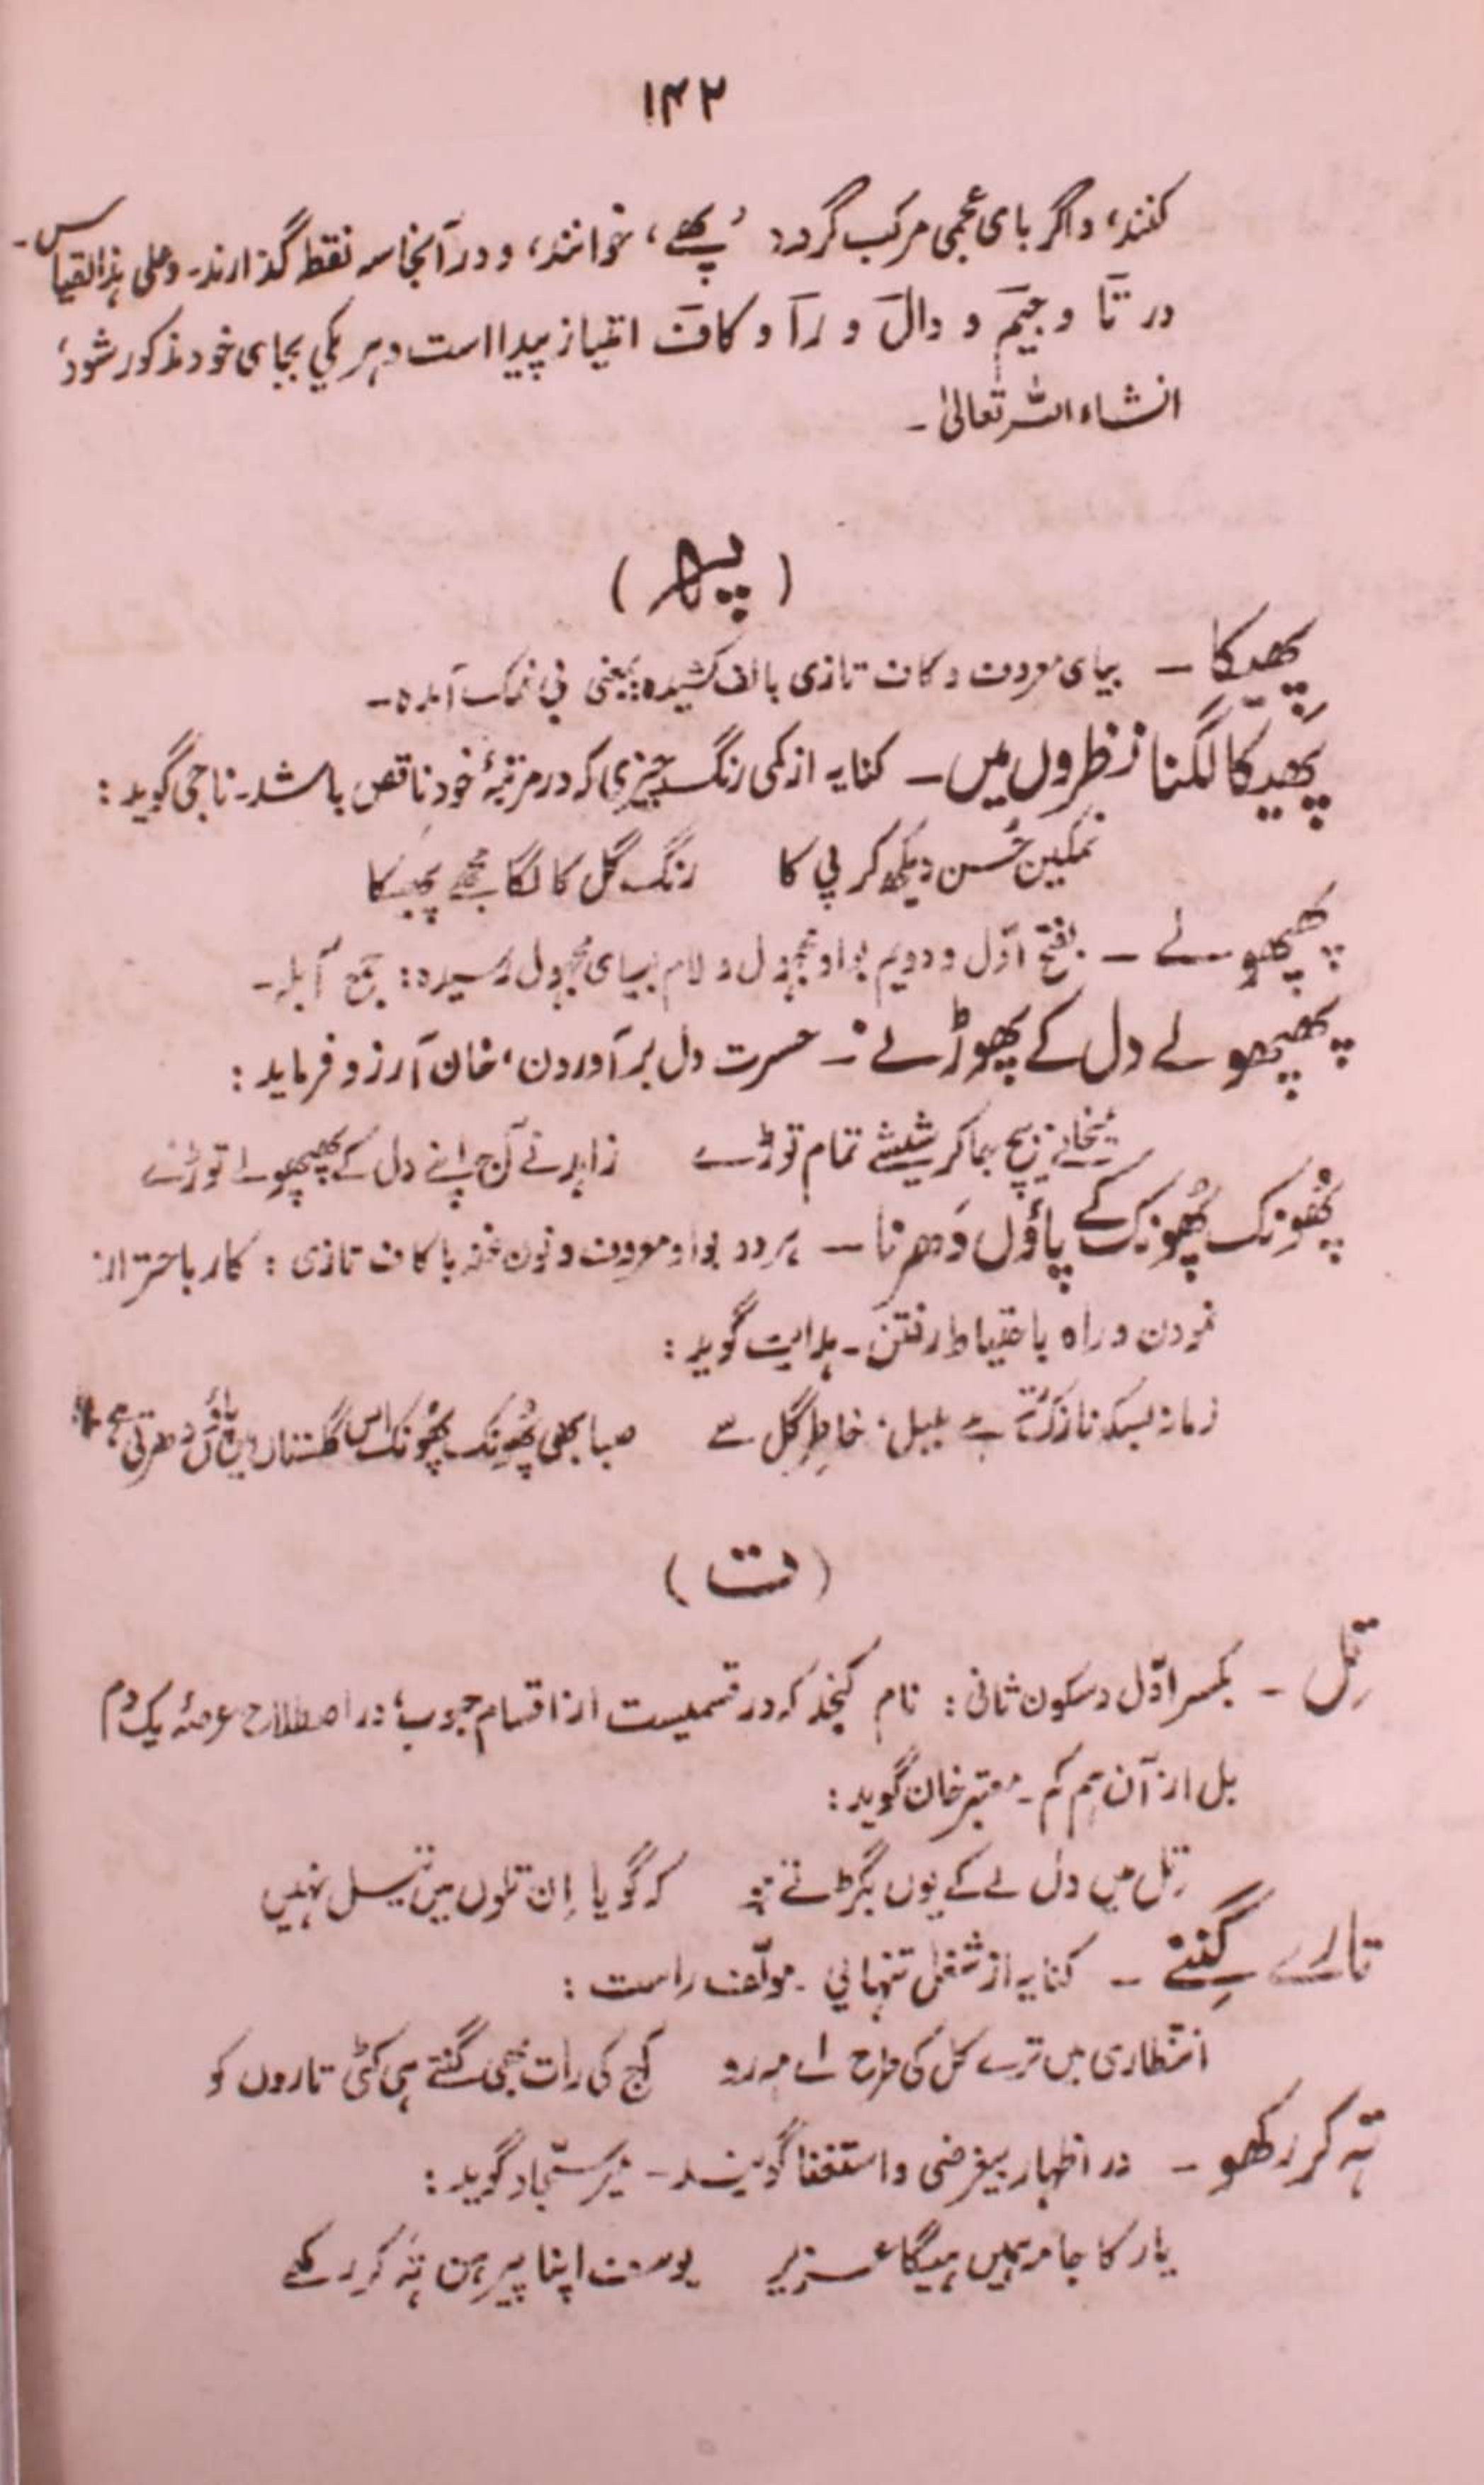 ۱۴۲
کنند، و اگر بای عجمی مرکب گردد 'پھے، خوانند، و در آنجا سہ نقطہ گذارند۔ و علی ہذا القیاس۔
در تا و جیم و دال و را و کاف امتیاز پیدا است و ہر یکی بجای خود مذکور شود،
انشاء اللہ تعالیٰ۔
(پھ)
پھیکا – بیای معروف و کاف تازی بالف کشیدہ: بمعنی بی نمک آمدہ–
پھیکا لگنا نظروں میں – کنایہ از کمی رنگ چیزی کہ در مرتبۂ خود ناقص باشد۔ ناجی گوید:
نمکین حُسن دیکھ کر پی کا    رنگ گل کا لگا مجھے پھیکا
پھپھولے – بفتح اوّل و دویم بواو مجہول و لام بیای مجہول رسیدہ: جمع آبلہ–
پھپھولے دل کے پھوڑنے – حسرت دل بر آوردن، خان آرزو فرماید:
میخانے بیچ جا کر شیشے تمام توڑے    زاہد نے آج اپنے دل کے پھپھولے توڑے
پُھونک پُھونک کے پاؤں دَھرنا – ہر دو بواو معروف و نون غنہ با کاف تازی: کار باحتراز
نمودن و راہ باحتیاط رفتن۔ ہدایت گوید:
زمانہ بسکہ نازک تر ہے بلبل خاطرِ گل سے    صبا بھی پُھونک پُھونک اس گلستاں میں پاؤں دھرتی ہے
(ت)
تِل – بکسر اوّل و سکون ثانی: نام کنجد کہ در قسمیست از اقسام حبوب، در اصطلاح عرصۂ یک دم
بل از آن ہم کم۔ معتبر خان گوید:
تِل میں دل لے کے یوں بگڑتے    کہ گویا اِن تلوں میں تیل نہیں
تارے گِننے – کنایہ از شغل تنہائی۔ مولّف راست:
انتظاری میں ترے کل کی طرح اے مہ رو    آج کی رات بھی گنتے ہی کٹی تاروں کو
تہ کر رکھو – در اظہار بیغرضی و استغنا گویند– میر سجّاد گوید:
یار کا جامہ ہمیں ہیگا عزیز    یوسف اپنا پیرہن تہ کر رکھے